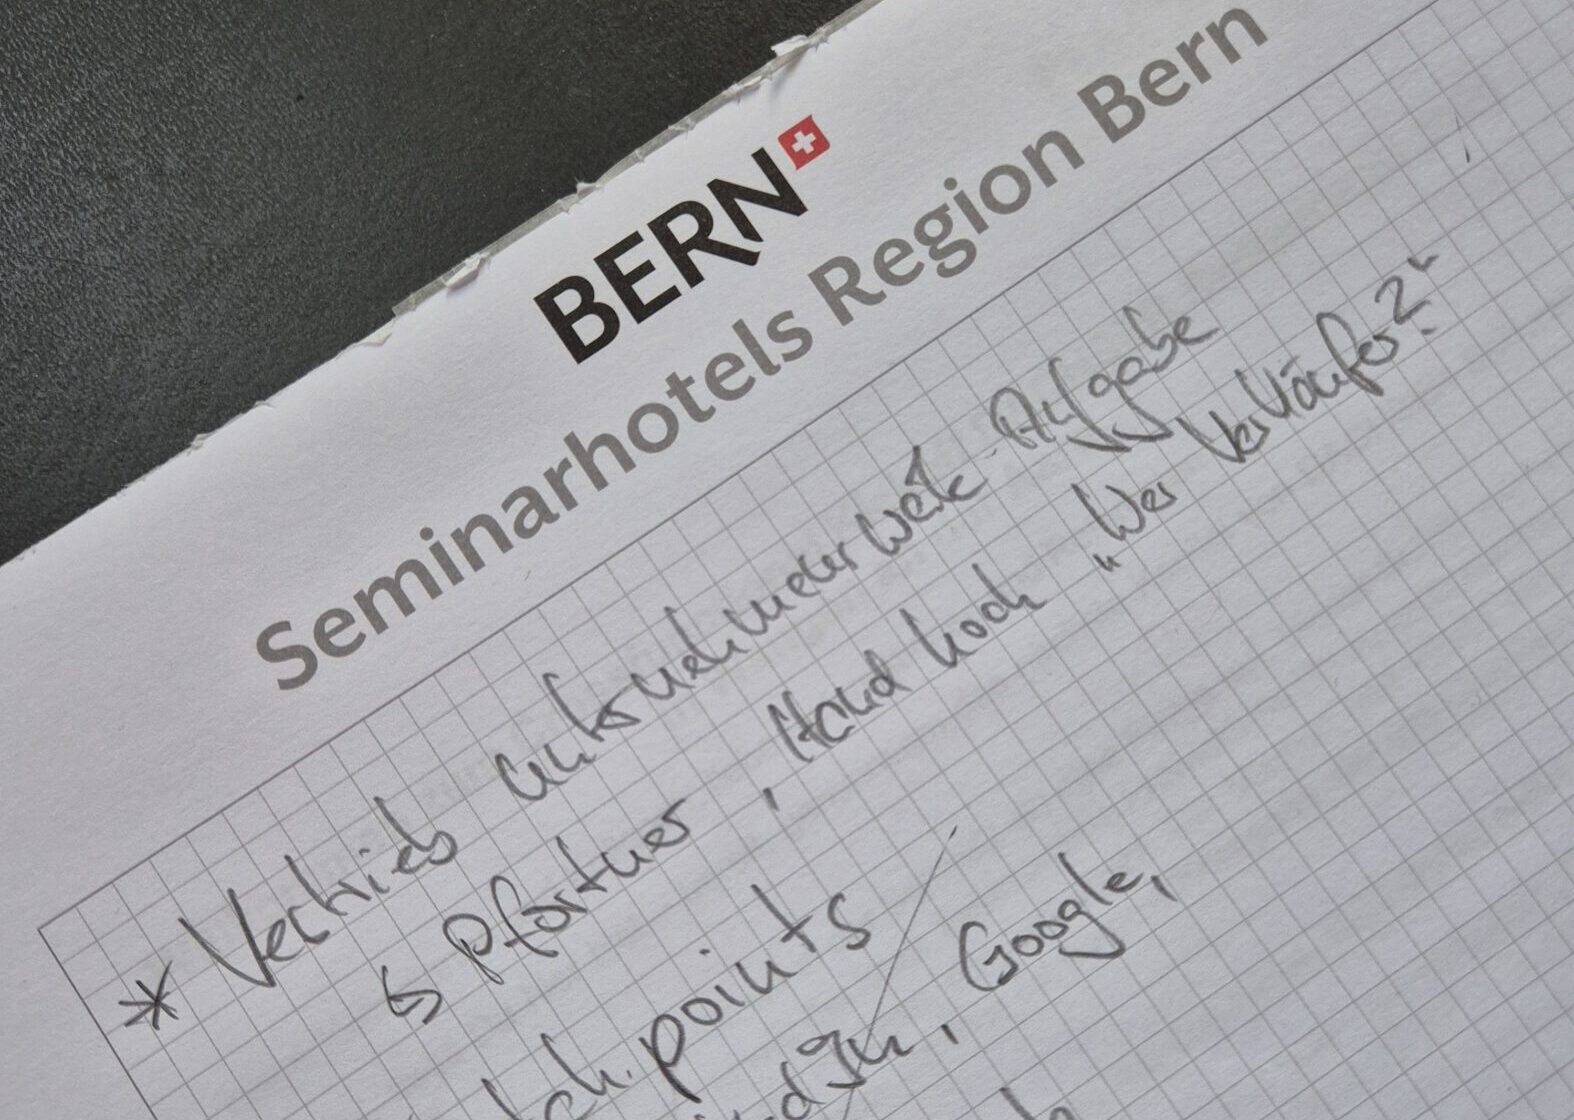 BERN
Seminarhotels Region Bern
* Vertrieb unternehmerweite Aufgabe
↳ Pförtner, Hand hoch „Wer Verkäufer?“
points
Google,